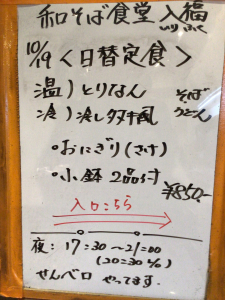 和そば食堂 入福
いりふく
10/19 <日替定食>
温) とりなん
冷) 冷しタヌキ風
そば
うどん
・おにぎり(さけ)
・小鉢 2品付
¥850-
入口こちら
夜: 17:30~21:00
(20:30 %)
せんベロ やってます.